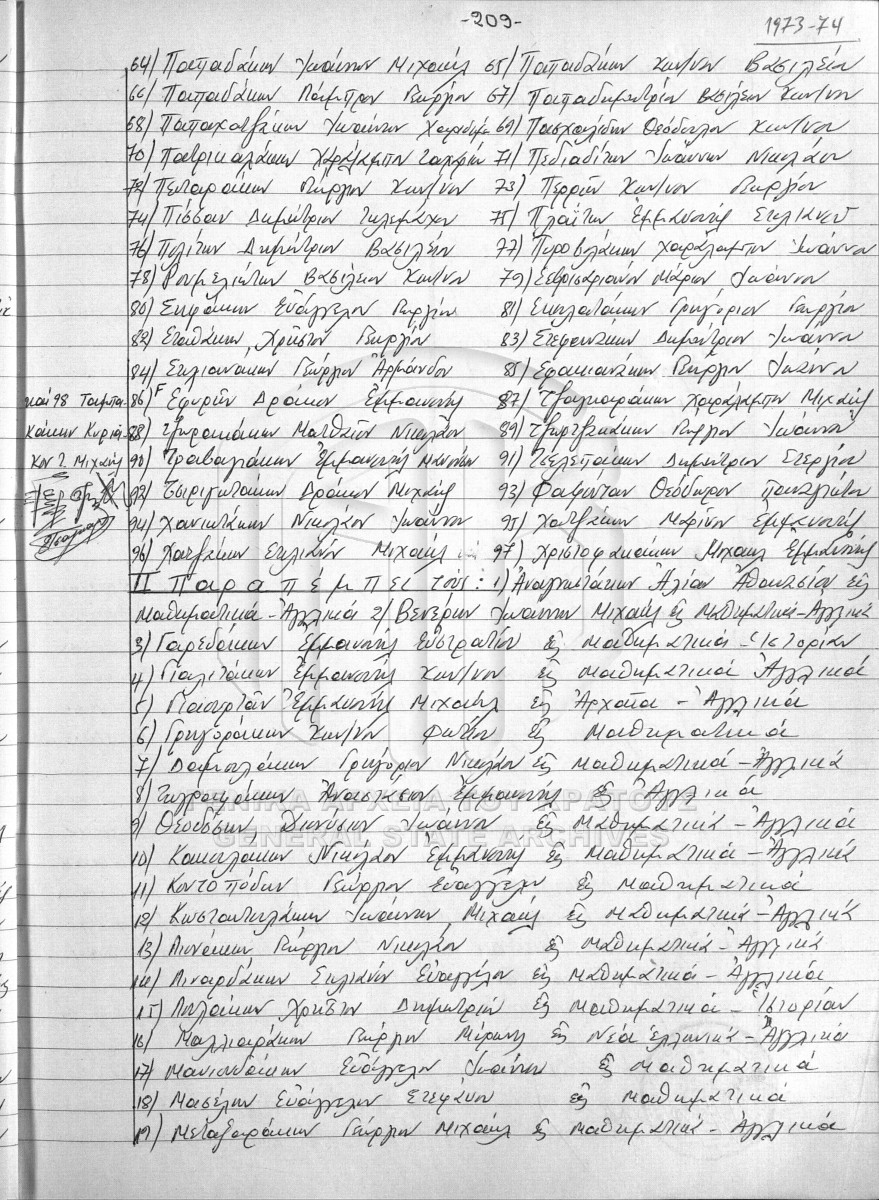 -209-
1973-74
64) Παπαδάκην Ἰωάννην Μιχαήλ 65) Παπαδάκην Κων/νον Βασιλείου
66) Παπαδάκην Λάμπρον Γεωργίου 67) Παπαδημητρίου Βασίλειον Κων/νου
68) Παπαχατζάκην Ἰωάννην 69) Πασχαλίδην Θεόδουλον Κων/νου
70) Πατρικαλάκην Χαράλαμπον 71) Πεδιαδίτην Ἰωάννην Νικολάου
72) Πεταράκην Γεώργιον Κων/νου 73) Περρῆν Κων/νον Γεωργίου
74) Πίσσαν Δημήτριον Τηλεμάχου 75) Πλαΐτην Ἐμμανουήλ Στυλιανοῦ
76) Πολίτην Δημήτριον Βασιλείου 77) Πυροβολάκην Χαράλαμπον Ἰωάννου
78) Ρουμελιώτην Βασίλειον Κων/νου 79) Μάριον Ἰωάννου
80) Σηφάκην Εὐάγγελον Γεωργίου 81) Σκουλατάκην Γρηγόριον Γεωργίου
82) Σταθάκην Χρῆστον Γεωργίου 83) Στεφανάκην Δημήτριον Ἰωάννου
84) Στυλιανάκην Γεώργιον Ἀρμάνδου 85) Σφακιανάκην Γεώργιον Ἰωάννου
καί 98 Ταμπα- 86) Σφυρῆν Δράκον Ἐμμανουήλ 87) Τζαγκαράκην Χαράλαμπον Μιχαήλ
κάκην Κυριά- 88) Τζωρακάκην Ματθαῖον Νικολάου 89) Τζωρτζακάκην Γεώργιον Ἰωάννου
κον τ. Μιχαήλ 90) Τραβαγιάκην Ἐμμανουήλ 91) Τσελεπάκην Δημήτριον Στεργίου
92) Τσιριγωτάκην Δράκον Μιχαήλ 93) Θεόδωρον Παναγιώτου
94) Χανιωτάκην Νικόλαον Ἰωάννου 95) Χατζάκην Μαρίνον Ἐμμανουήλ
96) Χατζάκην Στυλιανόν Μιχαήλ 97) Χριστοφακάκην Μιχαήλ Ἐμμανουήλ
II Παραπέμπει τούς: 1) Ἀναγνωστάκην Ἀθανασίου εἰς
Μαθηματικά - Ἀγγλικά 2) Βενέρην Ἰωάννην Μιχαήλ εἰς Μαθηματικά - Ἀγγλικά
3) Γαρεδάκην Ἐμμανουήλ Εὐστρατίου εἰς Μαθηματικά - Ἱστορίαν
4) Γιαλιτάκην Ἐμμανουήλ Κων/νου εἰς Μαθηματικά Ἀγγλικά
5) Ἐμμανουήλ Μιχαήλ εἰς Ἀρχαῖα - Ἀγγλικά
6) Γρηγοράκην Κων/νον Φωτίου εἰς Μαθηματικά
7) Δαμουλάκην Γρηγόριον Νικολάου εἰς Μαθηματικά - Ἀγγλικά
8) Ζωγραφάκην Ἀναστάσιον Ἐμμανουήλ εἰς Ἀγγλικά
9) Θεοδόσην Διονύσιον Ἰωάννου εἰς Μαθηματικά - Ἀγγλικά
10) Κακουλάκην Νικόλαον Ἐμμανουήλ εἰς Μαθηματικά - Ἀγγλικά
11) Κοντοπόδην Γεώργιον Εὐαγγέλου εἰς Μαθηματικά
12) Κωσταντουλάκην Ἰωάννην Μιχαήλ εἰς Μαθηματικά - Ἀγγλικά
13) Λιονάκην Γεώργιον Νικολάου εἰς Μαθηματικά - Ἀγγλικά
14) Λιναρδάκην Στυλιανόν Εὐαγγέλου εἰς Μαθηματικά - Ἀγγλικά
15) Λουλάκην Χρῆστον Δημητρίου εἰς Μαθηματικά - Ἱστορίαν
16) Μαλλιαράκην Γεώργιον Μύρωνος εἰς Νέα Ἑλληνικά - Ἀγγλικά
17) Μανιουδάκην Εὐάγγελον Ἰωάννου εἰς Μαθηματικά
18) Μασέλην Εὐάγγελον Στεφάνου εἰς Μαθηματικά
19) Μεταξαράκην Γεώργιον Μιχαήλ εἰς Μαθηματικά - Ἀγγλικά
ΓΕΝΙΚΑ ΑΡΧΕΙΑ ΤΟΥ ΚΡΑΤΟΥΣ
GENERAL STATE ARCHIVES